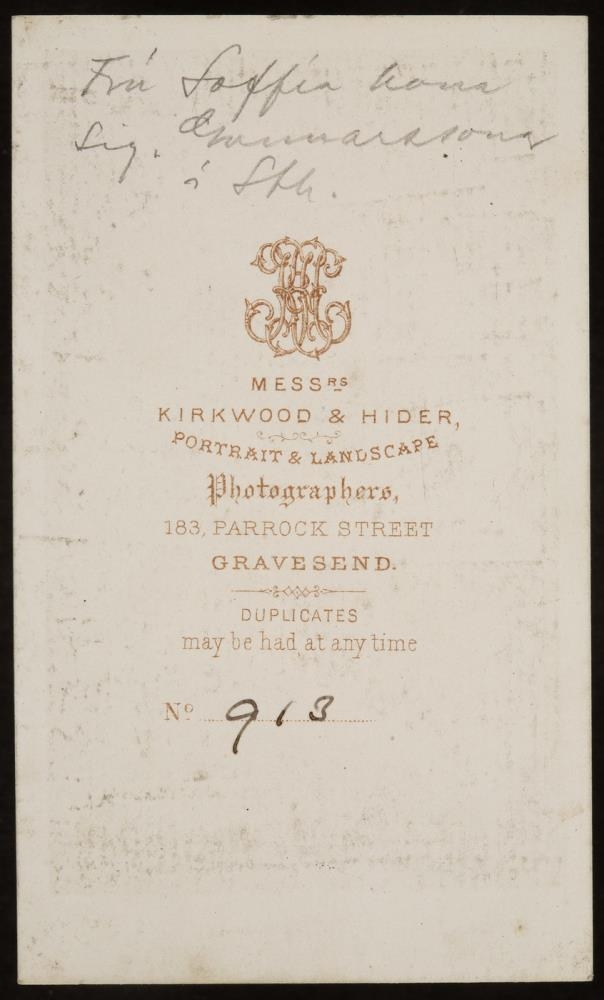 Frú Soffía kona
Sig. Gunnarssonar
í Sth.
MESSRS
KIRKWOOD & HIDER,
PORTRAIT & LANDSCAPE
Photographers,
183, PARROCK STREET
GRAVESEND.
DUPLICATES
may be had at any time
No 913